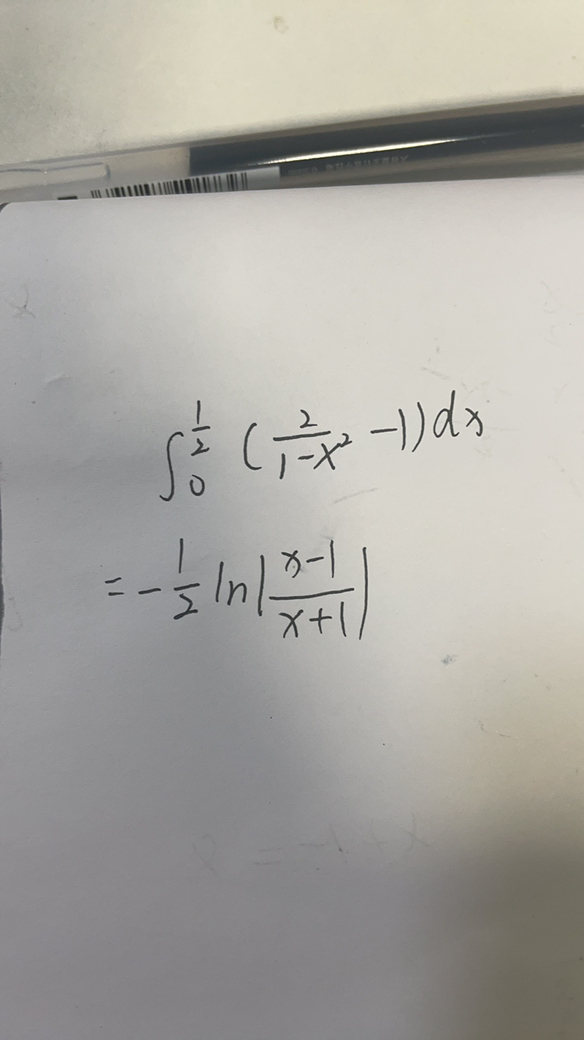 ∫₀^{1/2} (2/(1-x²) -1) dx
= -1/2 ln|(x-1)/(x+1)|